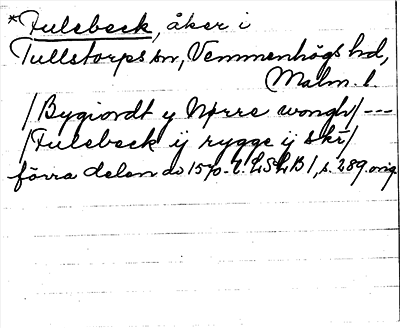 *Fulebeck, åker i
Tullstorps sn, Vemmenhögs hd,
Malm. l.
/Bygiordt y Nørre wongh/ ---
/Fulebeck ij rygge ij skr/
förra delen av 1570-t. LSLB 1, s. 289. orig.